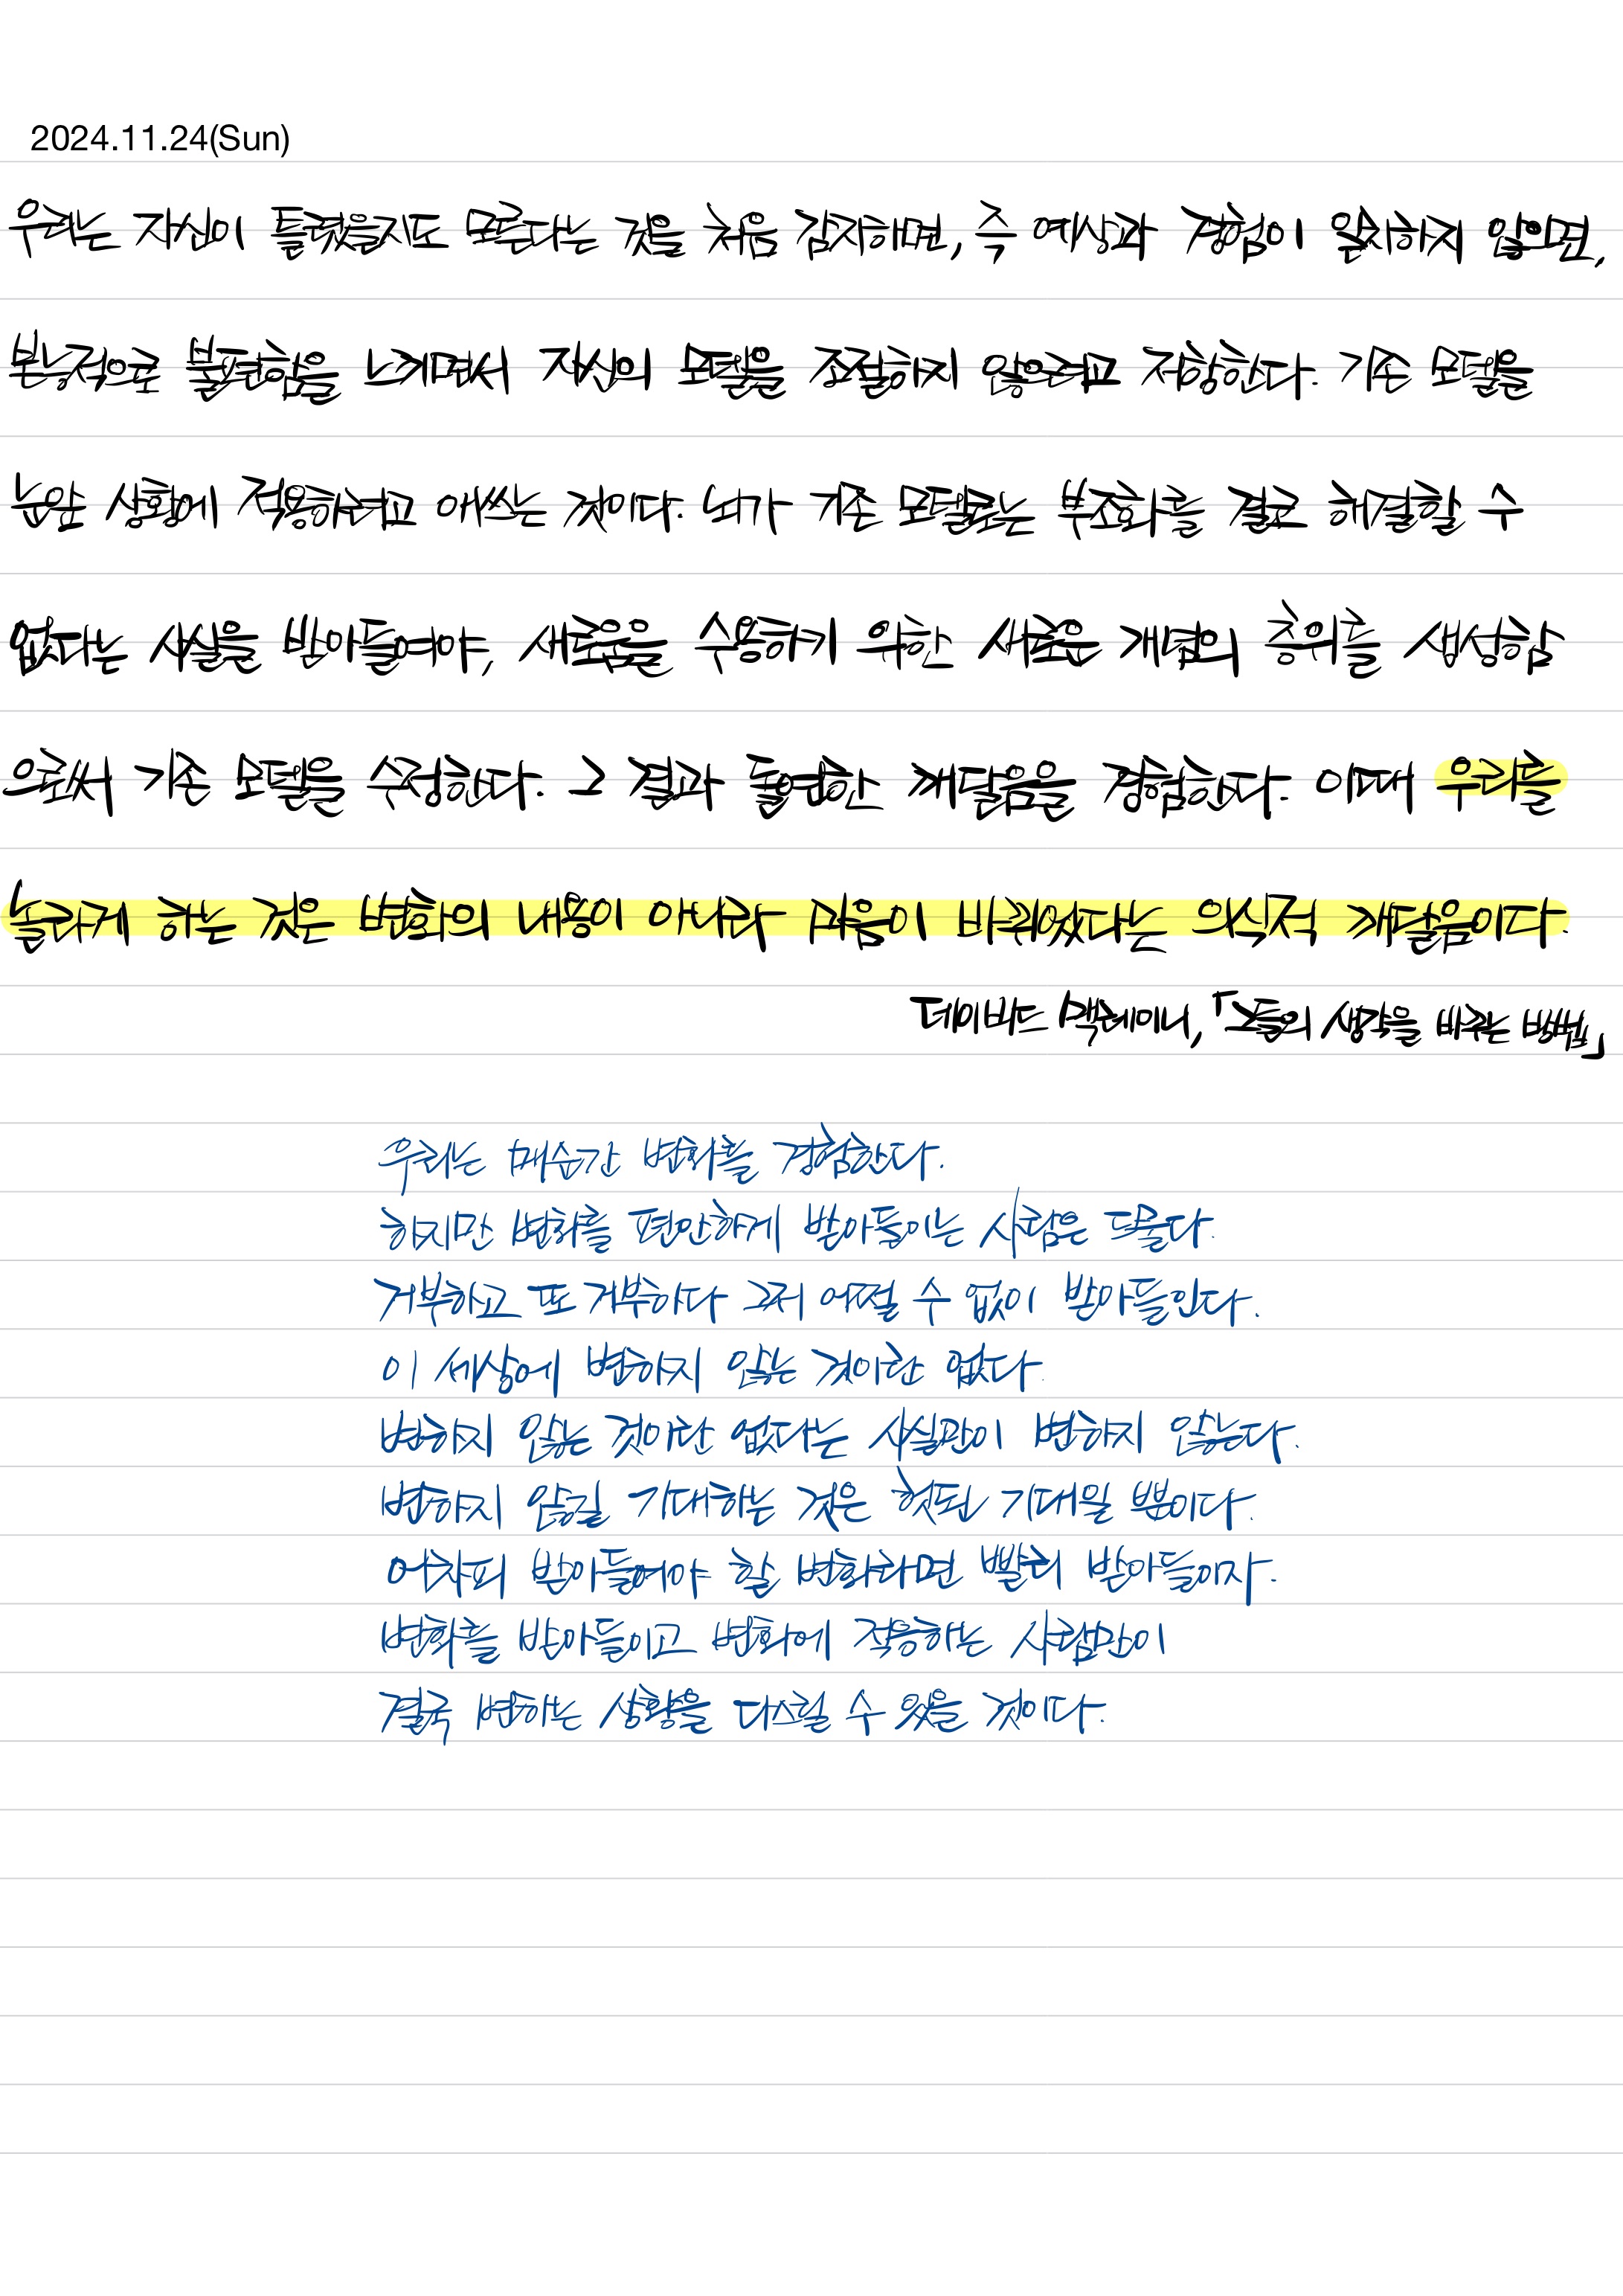 2024.11.24(Sun)
우리는 자신이 틀렸을지도 모른다는 것을 처음 감지하면, 즉 예상과 경험이 일치하지 않으면,
본능적으로 불편함을 느끼면서 자신의 모델을 조절하지 않으려고 저항한다. 기존 모델을
눈앞 상황에 적용하려고 애쓰는 것이다. 뇌가 기존 모델로는 부조화를 결코 해결할 수
없다는 사실을 받아들여야, 새로움을 수용하기 위한 새로운 개념의 층위를 생성함
으로써 기존 모델을 수정한다. 그 결과 돌연한 깨달음을 경험한다. 이때 우리를
놀라게 하는 것은 변화의 내용이 아니라 마음이 바뀌었다는 의식적 깨달음이다.
데이비드 맥레이니, 「그들의 생각을 바꾸는 방법」
우리는 매순간 변화를 경험한다.
하지만 변화를 편안하게 받아들이는 사람은 드물다.
거부하고 또 거부하다 그저 어쩔 수 없이 받아들인다.
이 세상에 변하지 않는 것이란 없다.
변하지 않는 것이란 없다는 사실만이 변하지 않는다.
변하지 않길 기대하는 것은 헛된 기대일 뿐이다.
어차피 받아들여야 할 변화라면 빨리 받아들이자.
변화를 받아들이고 변화에 적응하는 사람만이
결국 변하는 상황을 다스릴 수 있을 것이다.